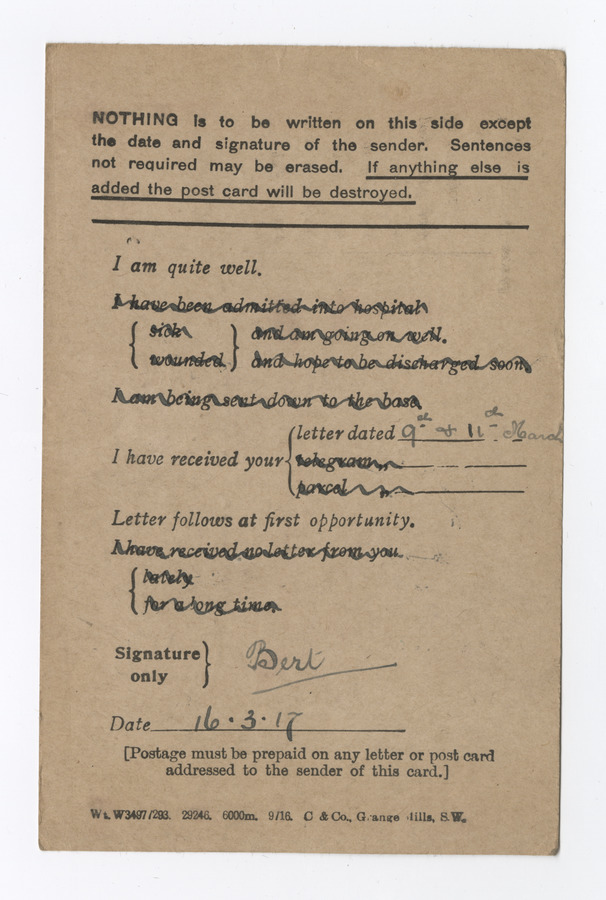 NOTHING is to be written on this side except
the date and signature of the sender. Sentences
not required may be erased. If anything else is
added the post card will be destroyed.
I am quite well.
I have been admitted into hospital
sick and am going on well.
wounded and hope to be discharged soon
I am being sent down to the base
letter dated 9th & 11th March
I have received your
telegram „
parcel „
Letter follows at first opportunity.
I have received no letter from you
lately
for a long time.
Signature
only
Bert
Date 16.3.17
[Postage must be prepaid on any letter or post card
addressed to the sender of this card.]
Wt. W3497/293. 29246. 6000m. 9/16. C & Co., Grange Mills, S.W.